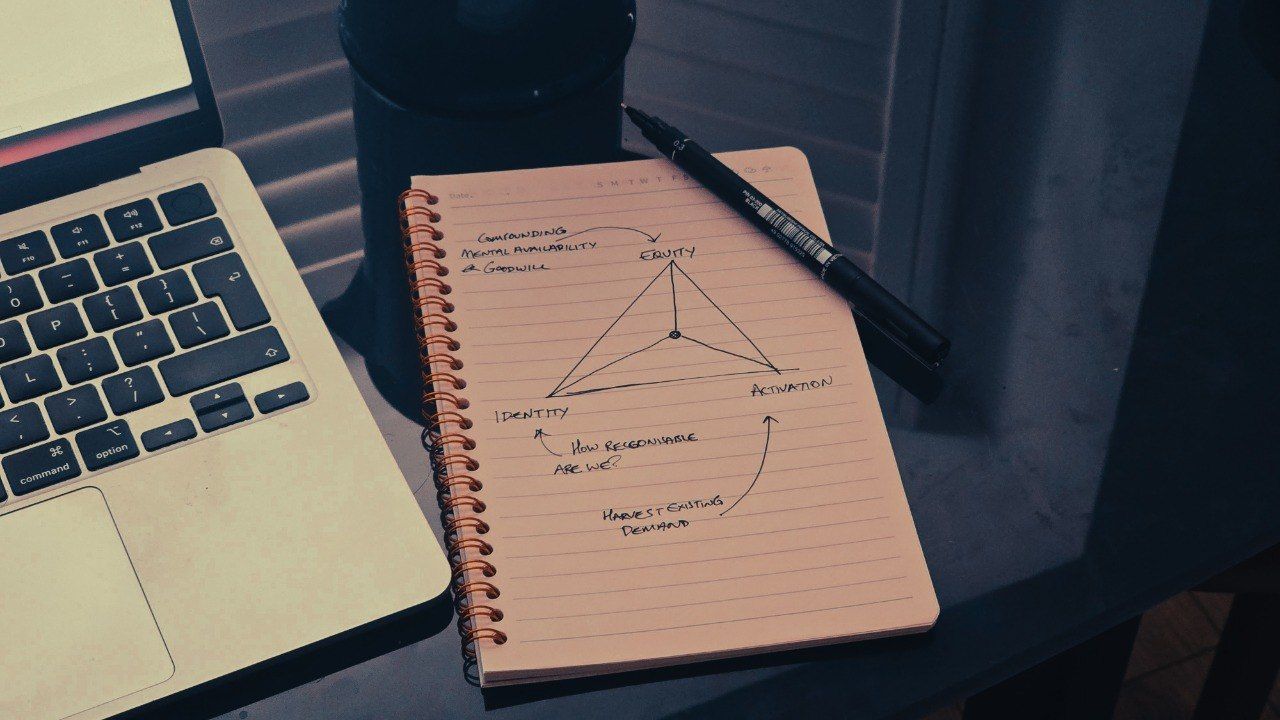 Date.
S M T W T F
COMPOUNDING
MENTAL AVAILABILITY
& GOODWILL
EQUITY
IDENTITY
ACTIVATION
HOW RECOGNISABLE
ARE WE?
HARVEST EXISTING
DEMAND
0.3
BLACK
F10
F11
F12
O
P
{
[
}
]
L
:
;
"
'
|
\
<
,
>
.
?
/
_
-
+
=
⌘
command
⌥
option